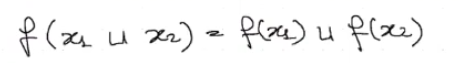 f(x₁ ⊔ x₂) = f(x₁) ⊔ f(x₂)